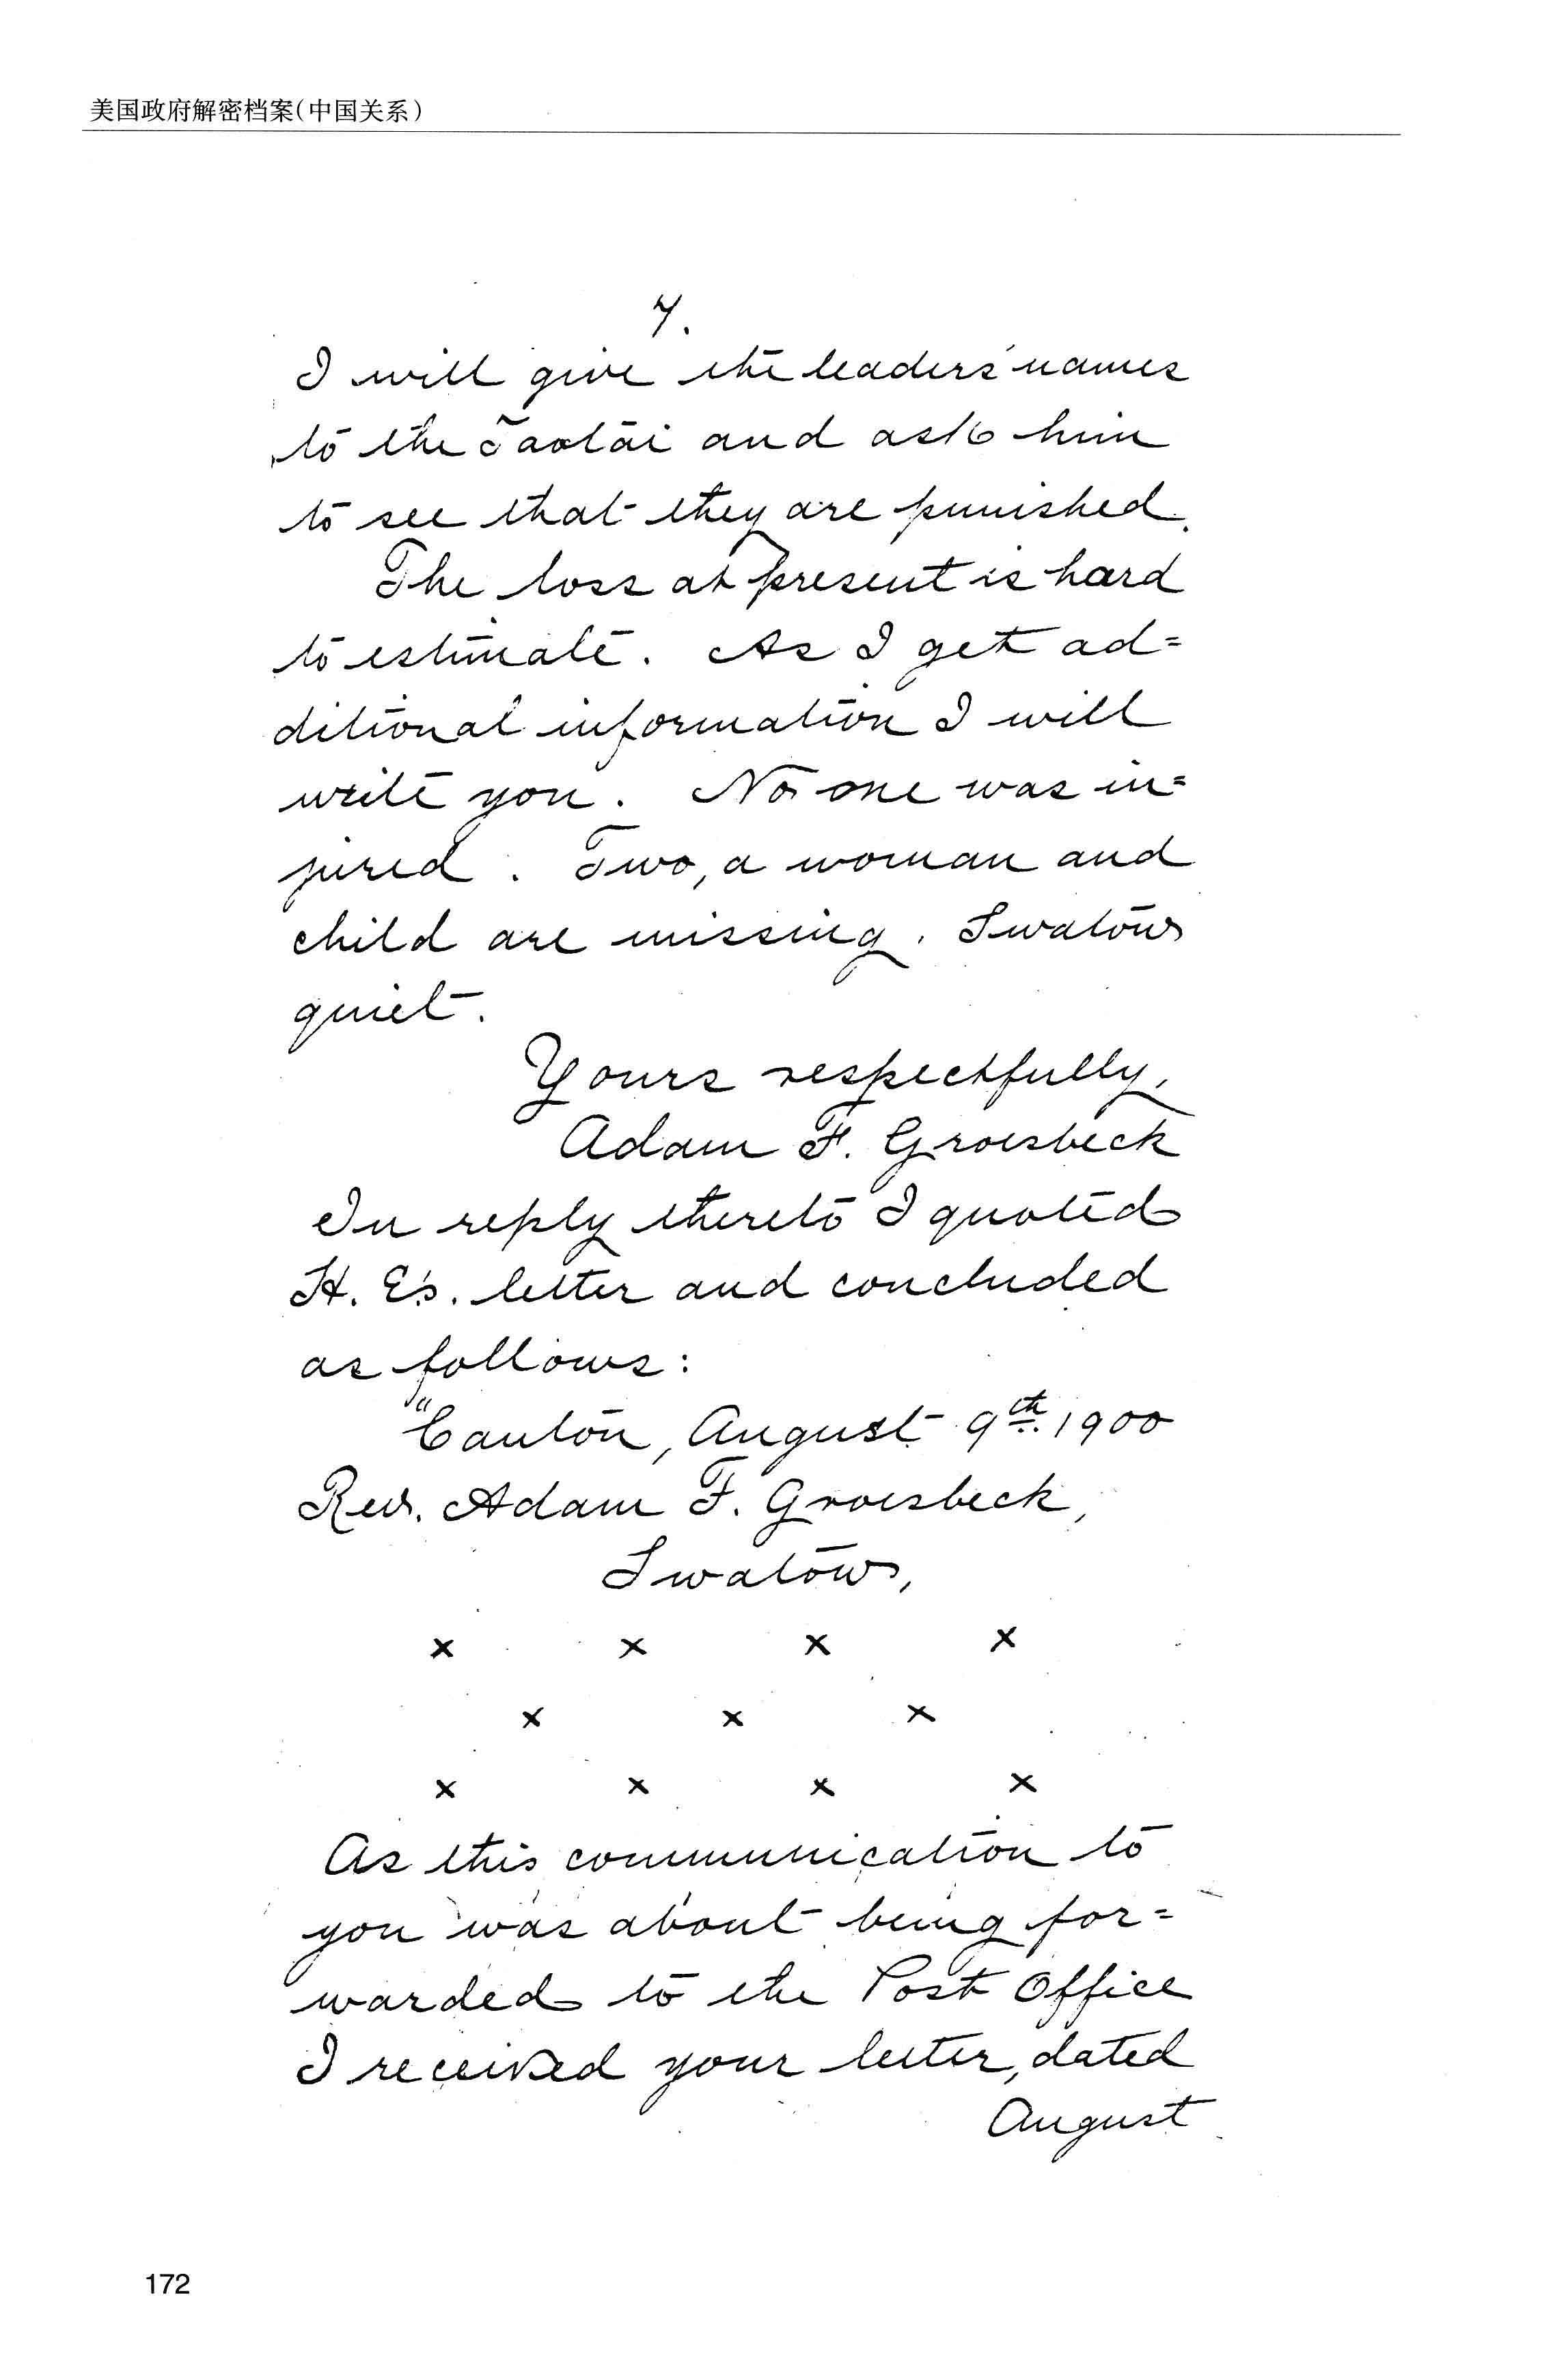 美国政府解密档案(中国关系)
7.
I will give the leaders' names
to the Taotai and ask him
to see that they are punished.
The loss at present is hard
to estimate. As I get ad=
ditional information I will
write you. No one was in=
jured. Two, a woman and
child are missing. Swatow
quiet.
Yours respectfully,
Adam F. Groesbeck
In reply thereto I quoted
H. E's. letter and concluded
as follows:
"Canton, August 9th. 1900
Rev. Adam F. Groesbeck,
Swatow,
x x x x
x x x
x x x x
As this communication to
you was about being for=
warded to the Post Office
I received your letter, dated
August
172